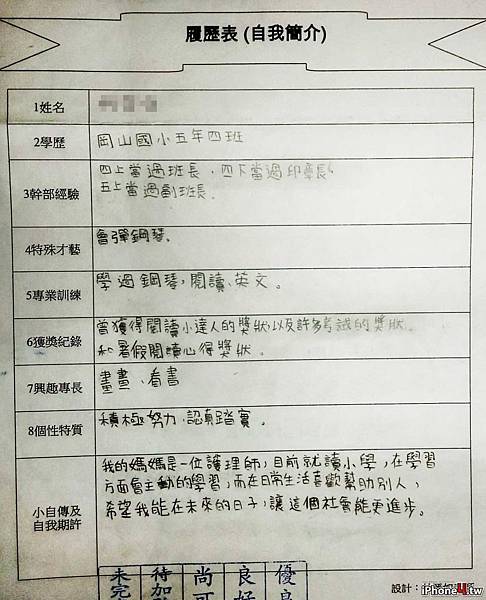 履歷表 (自我簡介)
1姓名
2學歷
岡山國小五年四班
3幹部經驗
四上當過班長，四下當過印章長。
五上當過副班長。
4特殊才藝
會彈鋼琴。
5專業訓練
學過鋼琴，閱讀、英文。
6獲獎紀錄
曾獲得閱讀小達人的獎狀，以及許多考試的獎狀
和暑假閱讀心得獎狀。
7興趣專長
畫畫、看書
8個性特質
積極努力、認真踏實。
小自傳及
自我期許
我的媽媽是一位護理師，目前就讀小學，在學習
方面會主動的學習，而在日常生活喜歡幫助別人，
希望我能在未來的日子，讓這個社會能更進步。
未完
待加
尚可
良好
優良
設計：
iPhone4.tw